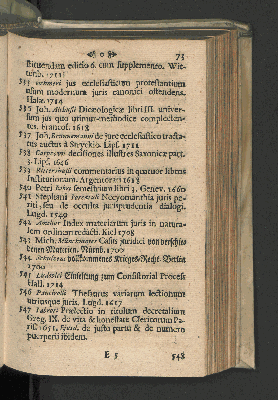 0 73
stituendum editio 6. cum supplemento. Wit-
tenb. 1711
535 Böhmeri jus ecclesiasticum protestantium
usum modernum juris canonici ostendens.
Halæ 1714
536 Joh. Althusii Dicæologicæ libri III. univer-
sum jus quo utimur methodice complecten-
tes. Francof. 1618
537 Joh. Brunnemanni de jure ecclesiastico tracta-
tus auctus à Strykio. Lips. 1711
538 Carpzovii decisiones illustres Saxonicæ part.
3. Lips. 1646
539 Rittershusii commentarius in quatuor libros
Institutionum. Argentorati 1618
540 Petri Fabri semestrium libri 3. Genev. 1660
541 Stephani Forcatuli Necyomanthia juris pe-
riti, seu de occulta jurisprudentia dialogi.
Lugd. 1549
542 Index materiarum juris in natura-
lem ordinem redacti. Kiel 1708
543 Mich. Casus juridici von verschie-
denen Materien. Nürnb. 1700
544 Schultzens vollkommenes Krieges-Recht. Berlin
1700
545 Ludovici Einleitung zum Consistorial Proceß
Hall. 1714
546 Pancirolli Thesaurus variarum lectionum
utriusque juris. Lugd. 1617
547 Prælectio in titulum decretalium
Greg. IX. de vita & honestate Clericorum Pa-
ris. 1651, Ejusd. de justo partu & de numero
puerperii ibidem.
E 5 548